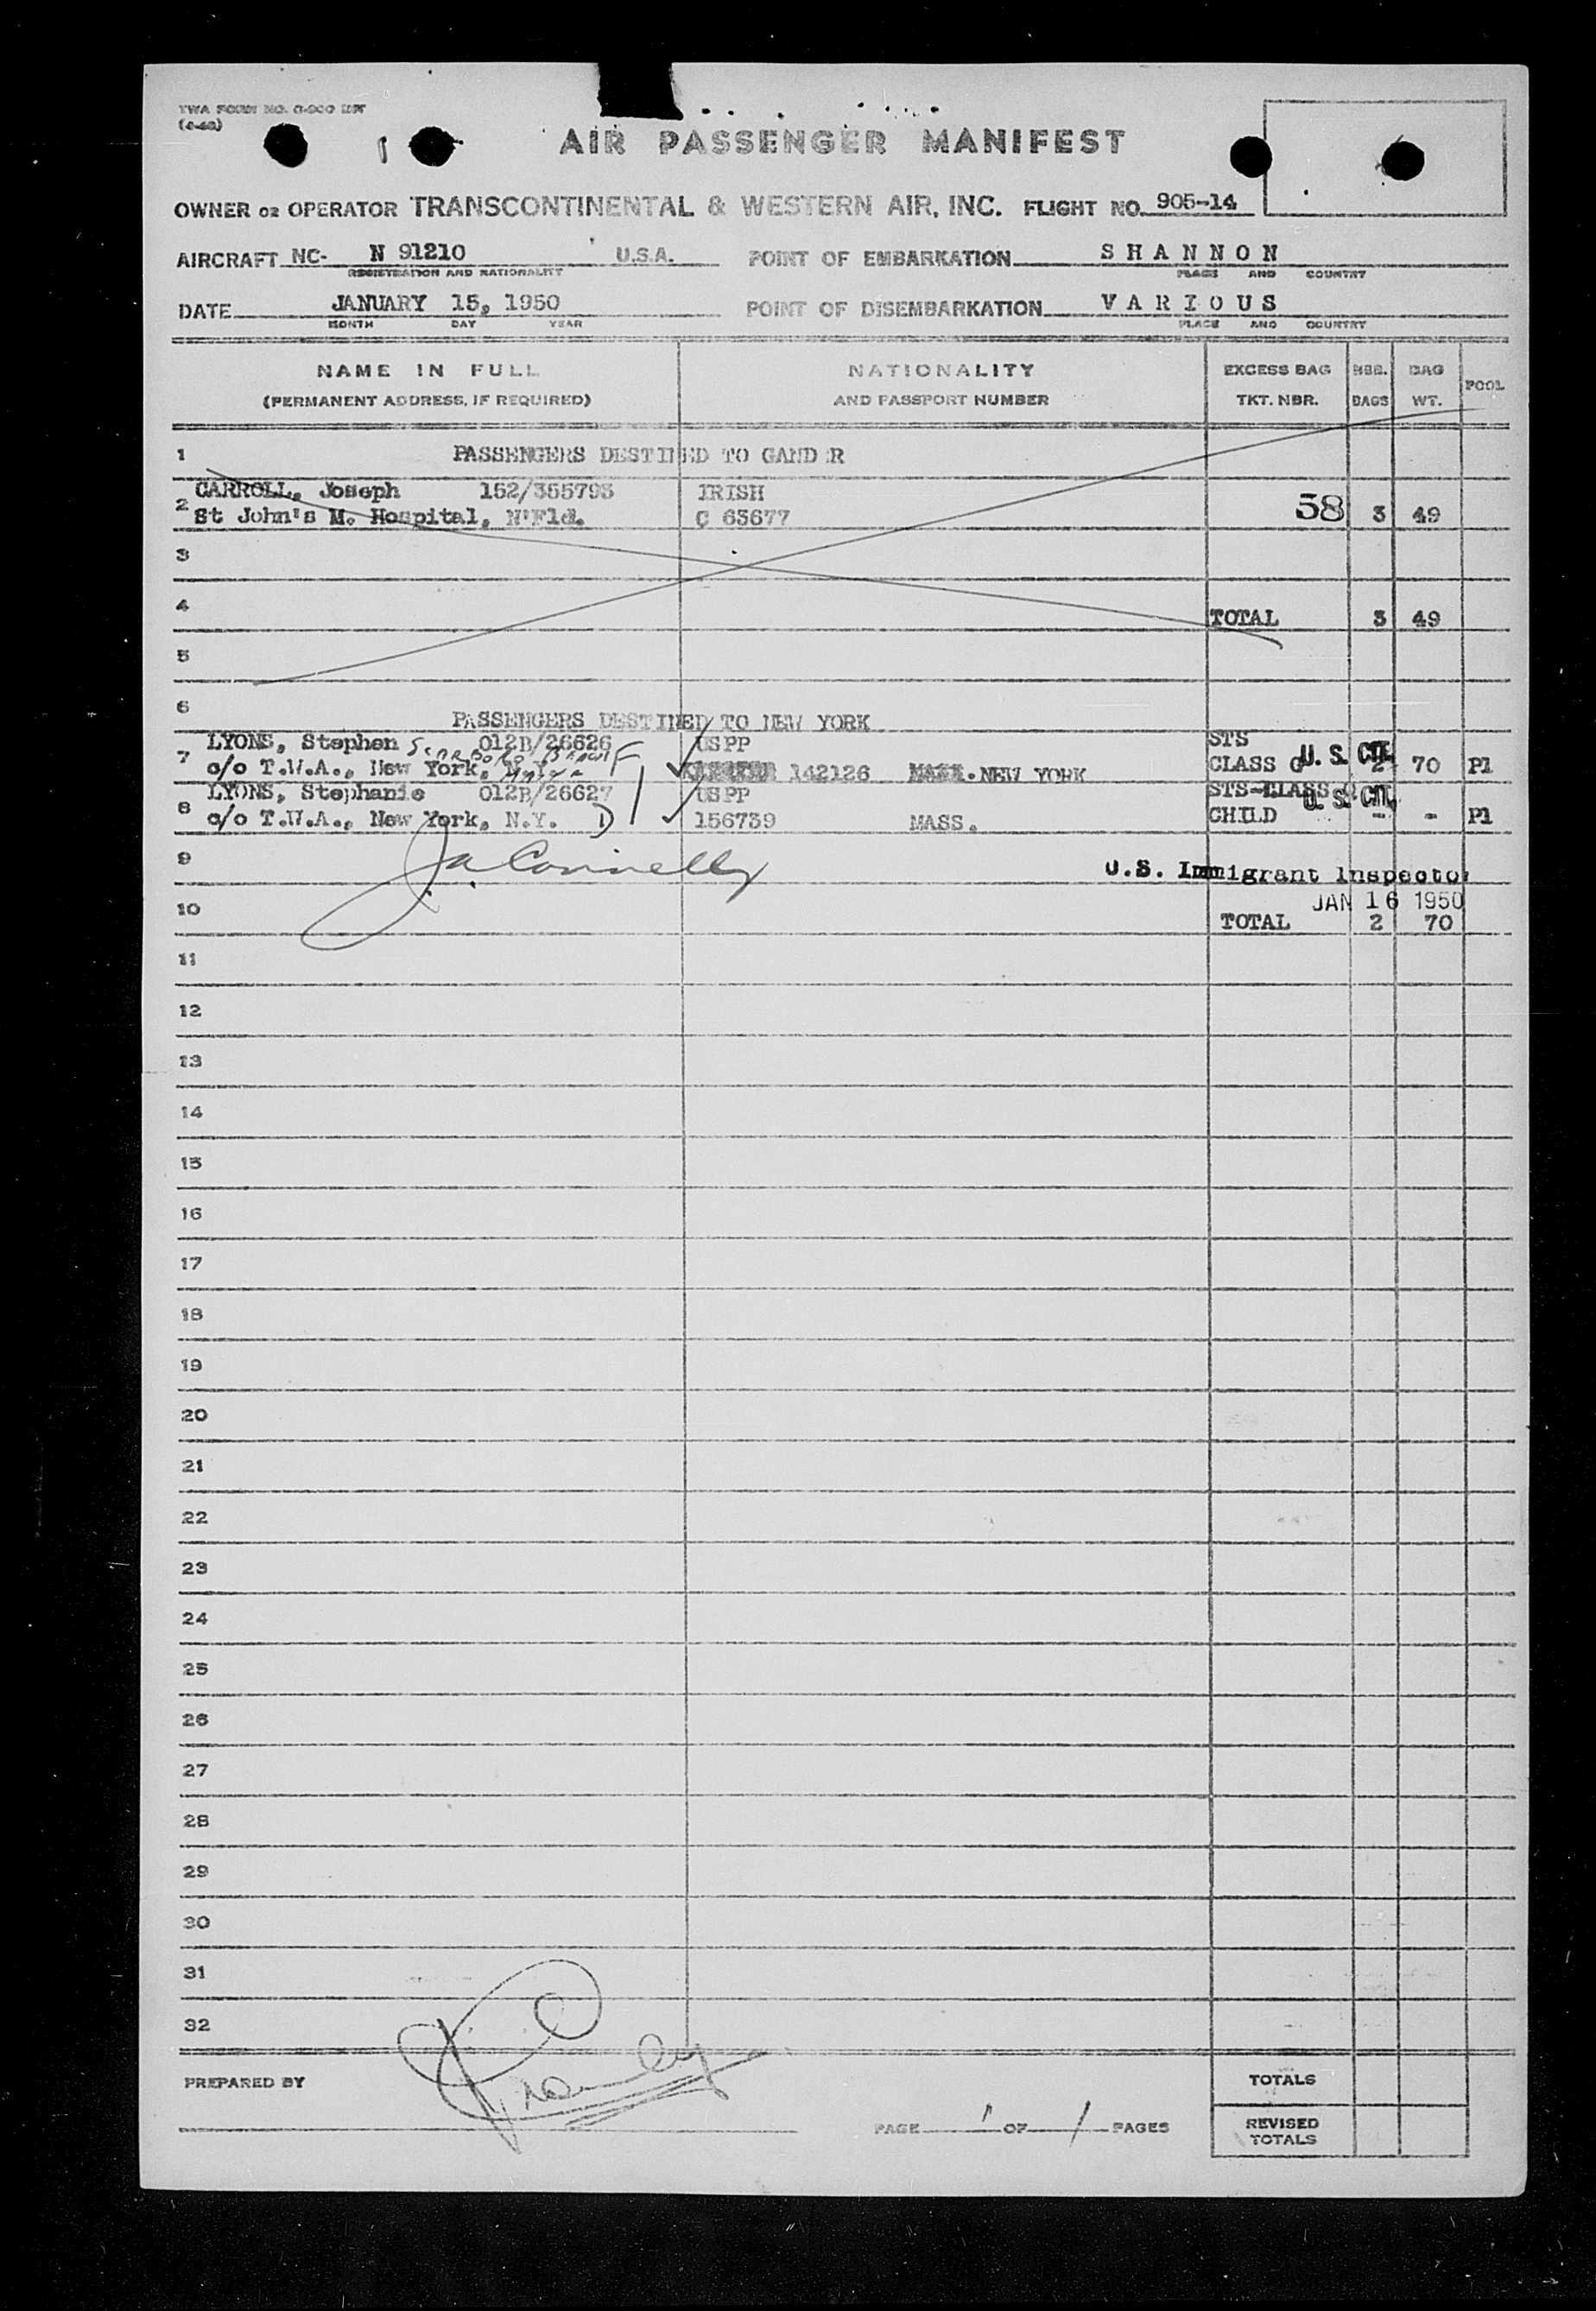 (4-48)
AIR PASSENGER MANIFEST
OWNER OR OPERATOR TRANSCONTINENTAL & WESTERN AIR, INC. FLIGHT NO. 905-14
AIRCRAFT NC- N 91210 U.S.A. POINT OF EMBARKATION SHANNON
REGISTRATION AND NATIONALITY PLACE AND COUNTRY
DATE JANUARY 15, 1950 POINT OF DISEMBARKATION VARIOUS
MONTH DAY YEAR PLACE AND COUNTRY
NAME IN FULL NATIONALITY EXCESS BAG NBR. BAG POOL
(PERMANENT ADDRESS, IF REQUIRED) AND PASSPORT NUMBER TKT. NBR. BAGS WT.
1 PASSENGERS DESTINED TO GAND R
CARROLL, Joseph 152/355793 IRISH
2 St John's M. Hospital, N'Fld. C 63677 58 3 49
3
4 TOTAL 3 49
5
6 PASSENGERS DESTINED TO NEW YORK
LYONS, Stephen 012B/26626 USPP STS
7 c/o T.W.A., New York, 142126 MASS. NEW YORK CLASS C U.S. CIT. 2 70 P1
LYONS, Stephanie 012B/26627 USPP STS-CLASS U.S. CIT.
8 c/o T.W.A., New York, N.Y. D 156739 MASS. CHILD - - P1
9 J.A. Connelly U.S. Immigrant Inspector
10 JAN 16 1950
TOTAL 2 70
11
12
13
14
15
16
17
18
19
20
21
22
23
24
25
26
27
28
29
30
31
32
PREPARED BY TOTALS
PAGE 1 OF 1 PAGES REVISED
TOTALS